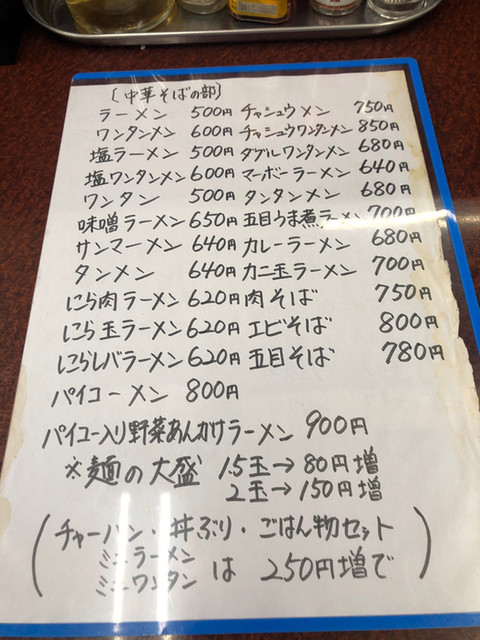 〔中華そばの部〕
ラーメン 500円 チャシュウメン 750円
ワンタンメン 600円 チャシュウワンタンメン 850円
塩ラーメン 500円 ダブルワンタンメン 680円
塩ワンタンメン 600円 マーボーラーメン 640円
ワンタン 500円 タンタンメン 680円
味噌ラーメン 650円 五目うま煮ラーメン 700円
サンマーメン 640円 カレーラーメン 680円
タンメン 640円 カニ玉ラーメン 700円
にら肉ラーメン 620円 肉そば 750円
にら玉ラーメン 620円 エビそば 800円
にらレバラーメン 620円 五目そば 780円
パイコーメン 800円
パイコー入り野菜あんかけラーメン 900円
※麺の大盛 1.5玉→80円増
2玉→150円増
(チャーハン・丼ぶり・ごはん物セット
ミニラーメン
ミニワンタン は 250円増で)